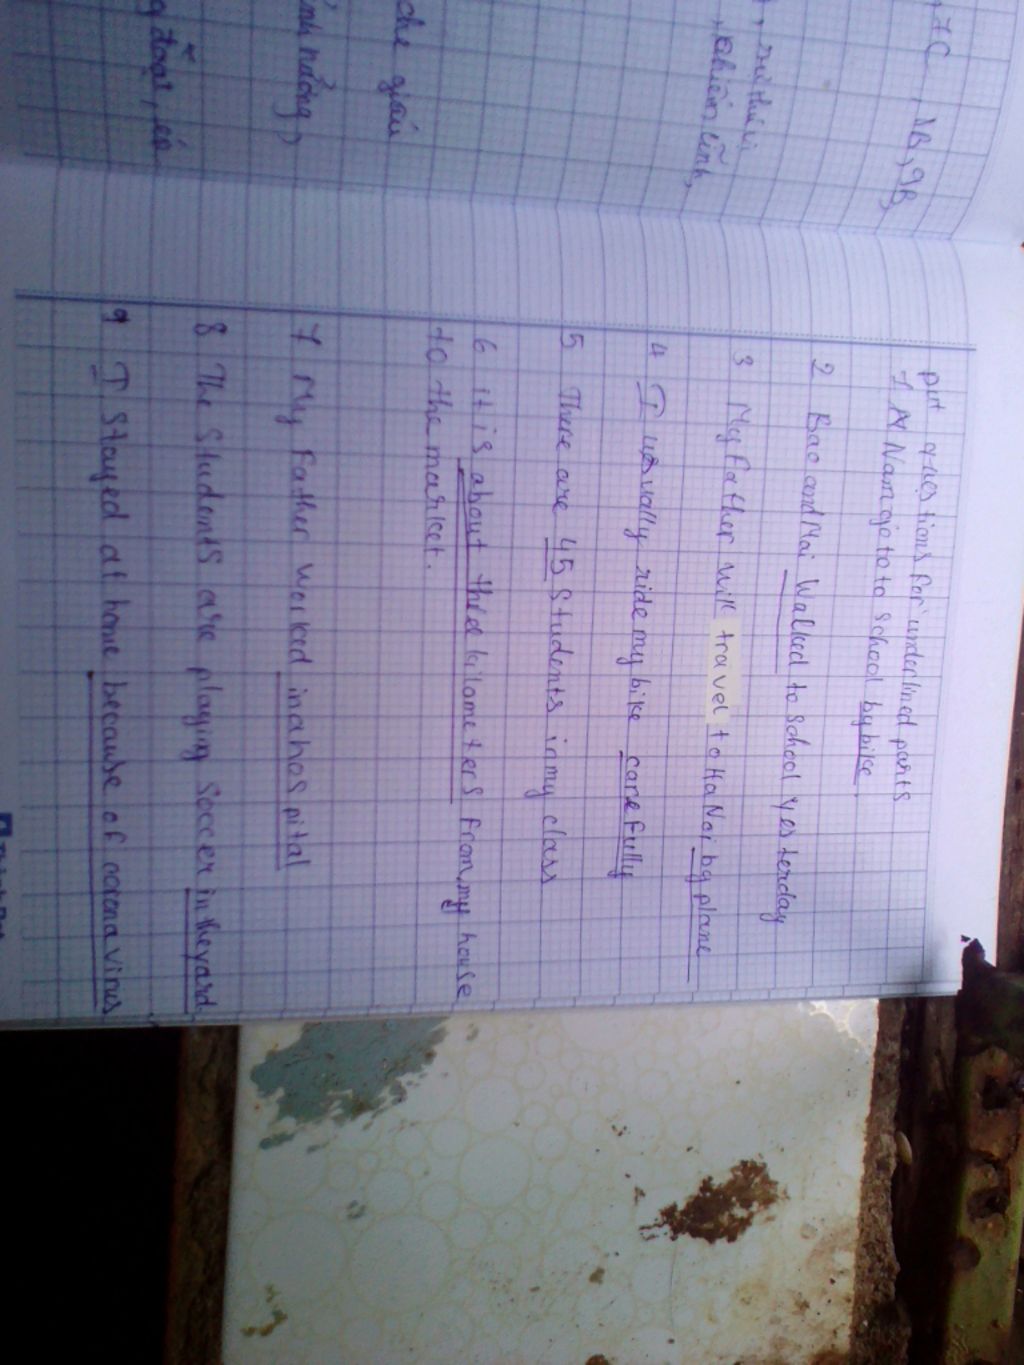 7C, 1B, 9B,
che giấu
put questions for underlined parts
1 Nam go to to school by bike.
2 Bao and Mai Walked to school yesterday
3 My Father will travel to Ha Noi by plane
4 I usually ride my bike carefully
5 There are 45 students in my class
6 it is about thee kilometers from, my house
to the market.
7 My Father worked in a hos pital
8 The Students are playing Soccer in the yard.
9 I stayed at home because of corona virus